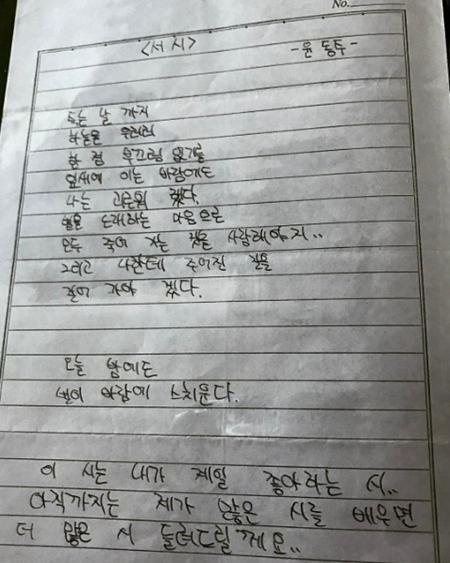 No.
<서시>
-윤동주-
죽는 날 까지
하늘을 우러러
한 점 부끄럼 없기를
잎새에 이는 바람에도
나는 괴로워 했다.
별을 노래하는 마음으로
모두 죽어 가는 것을 사랑해야지..
그리고 나한테 주어진 길을
걸어 가야 겠다.
오늘 밤에도
별이 바람에 스치운다.
이 시는 내가 제일 좋아하는 시..
아직까지는 제가 많은 시를 배우면
더 많은 시 들려드릴께요..